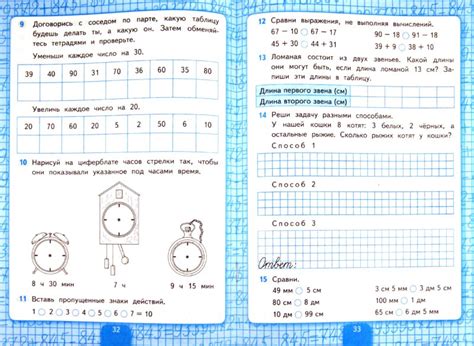 9 Договорись с соседом по парте, какую таблицу
будешь делать ты, а какую он. Затем обменяй-
тесь тетрадями и проверьте.
Уменьши каждое число на 30.
39 40 90 31 60 80 38 50 30
Увеличь каждое число на 20.
20 70 60 1 50 2 10 5 6 0
10 Нарисуй на циферблате часов стрелки так, чтобы
они показывали указанное под часами время.
8 ч 30 мин
7 ч
9 ч 15 мин
11 Вставь пропущенные знаки действий.
1 2 3 4 5 6 7 = 10
32
12 Сравни выражения, не выполняя вычислений.
67 − 10 67 − 17 90 − 18 91 − 18
45 + 30 44 + 31 39 + 9 38 + 9
13 Ломаная состоит из двух звеньев. Какой длины
они могут быть, если длина ломаной 13 см? За-
пиши эти длины в таблицу.
Длина первого звена (см)
Длина второго звена (см)
14 Реши задачу разными способами.
У нашей кошки 8 котят: 3 белых, 2 чёрных, а
остальные рыжие. Сколько рыжих котят у кошки?
Способ 1
Способ 2
Способ 3
Ответ:
15 Сравни.
49 мм 5 см 3 см 5 мм 3 дм 5 см
100 см 8 дм 100 мм 1 дм
10 дм 99 см 1 см 1 дм
33